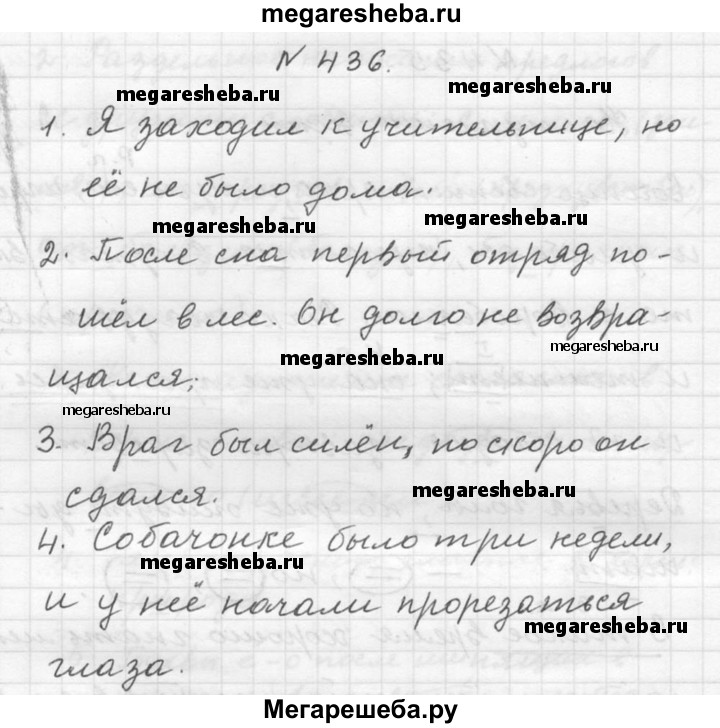 megaresheba.ru
N 436.
megaresheba.ru
megaresheba.ru
1. Я заходил к учительнице, но
её не было дома.
megaresheba.ru
megaresheba.ru
2. После сна первый отряд по-
шёл в лес. Он долго не возвра-
megaresheba.ru
megaresheba.ru
щался;
megaresheba.ru
3. Враг был силён, но скоро он
сдался.
megaresheba.ru
4. Собачонке было три недели,
megaresheba.ru
и у неё начали прорезаться
megaresheba.ru
глаза.
Мегарешеба.ру